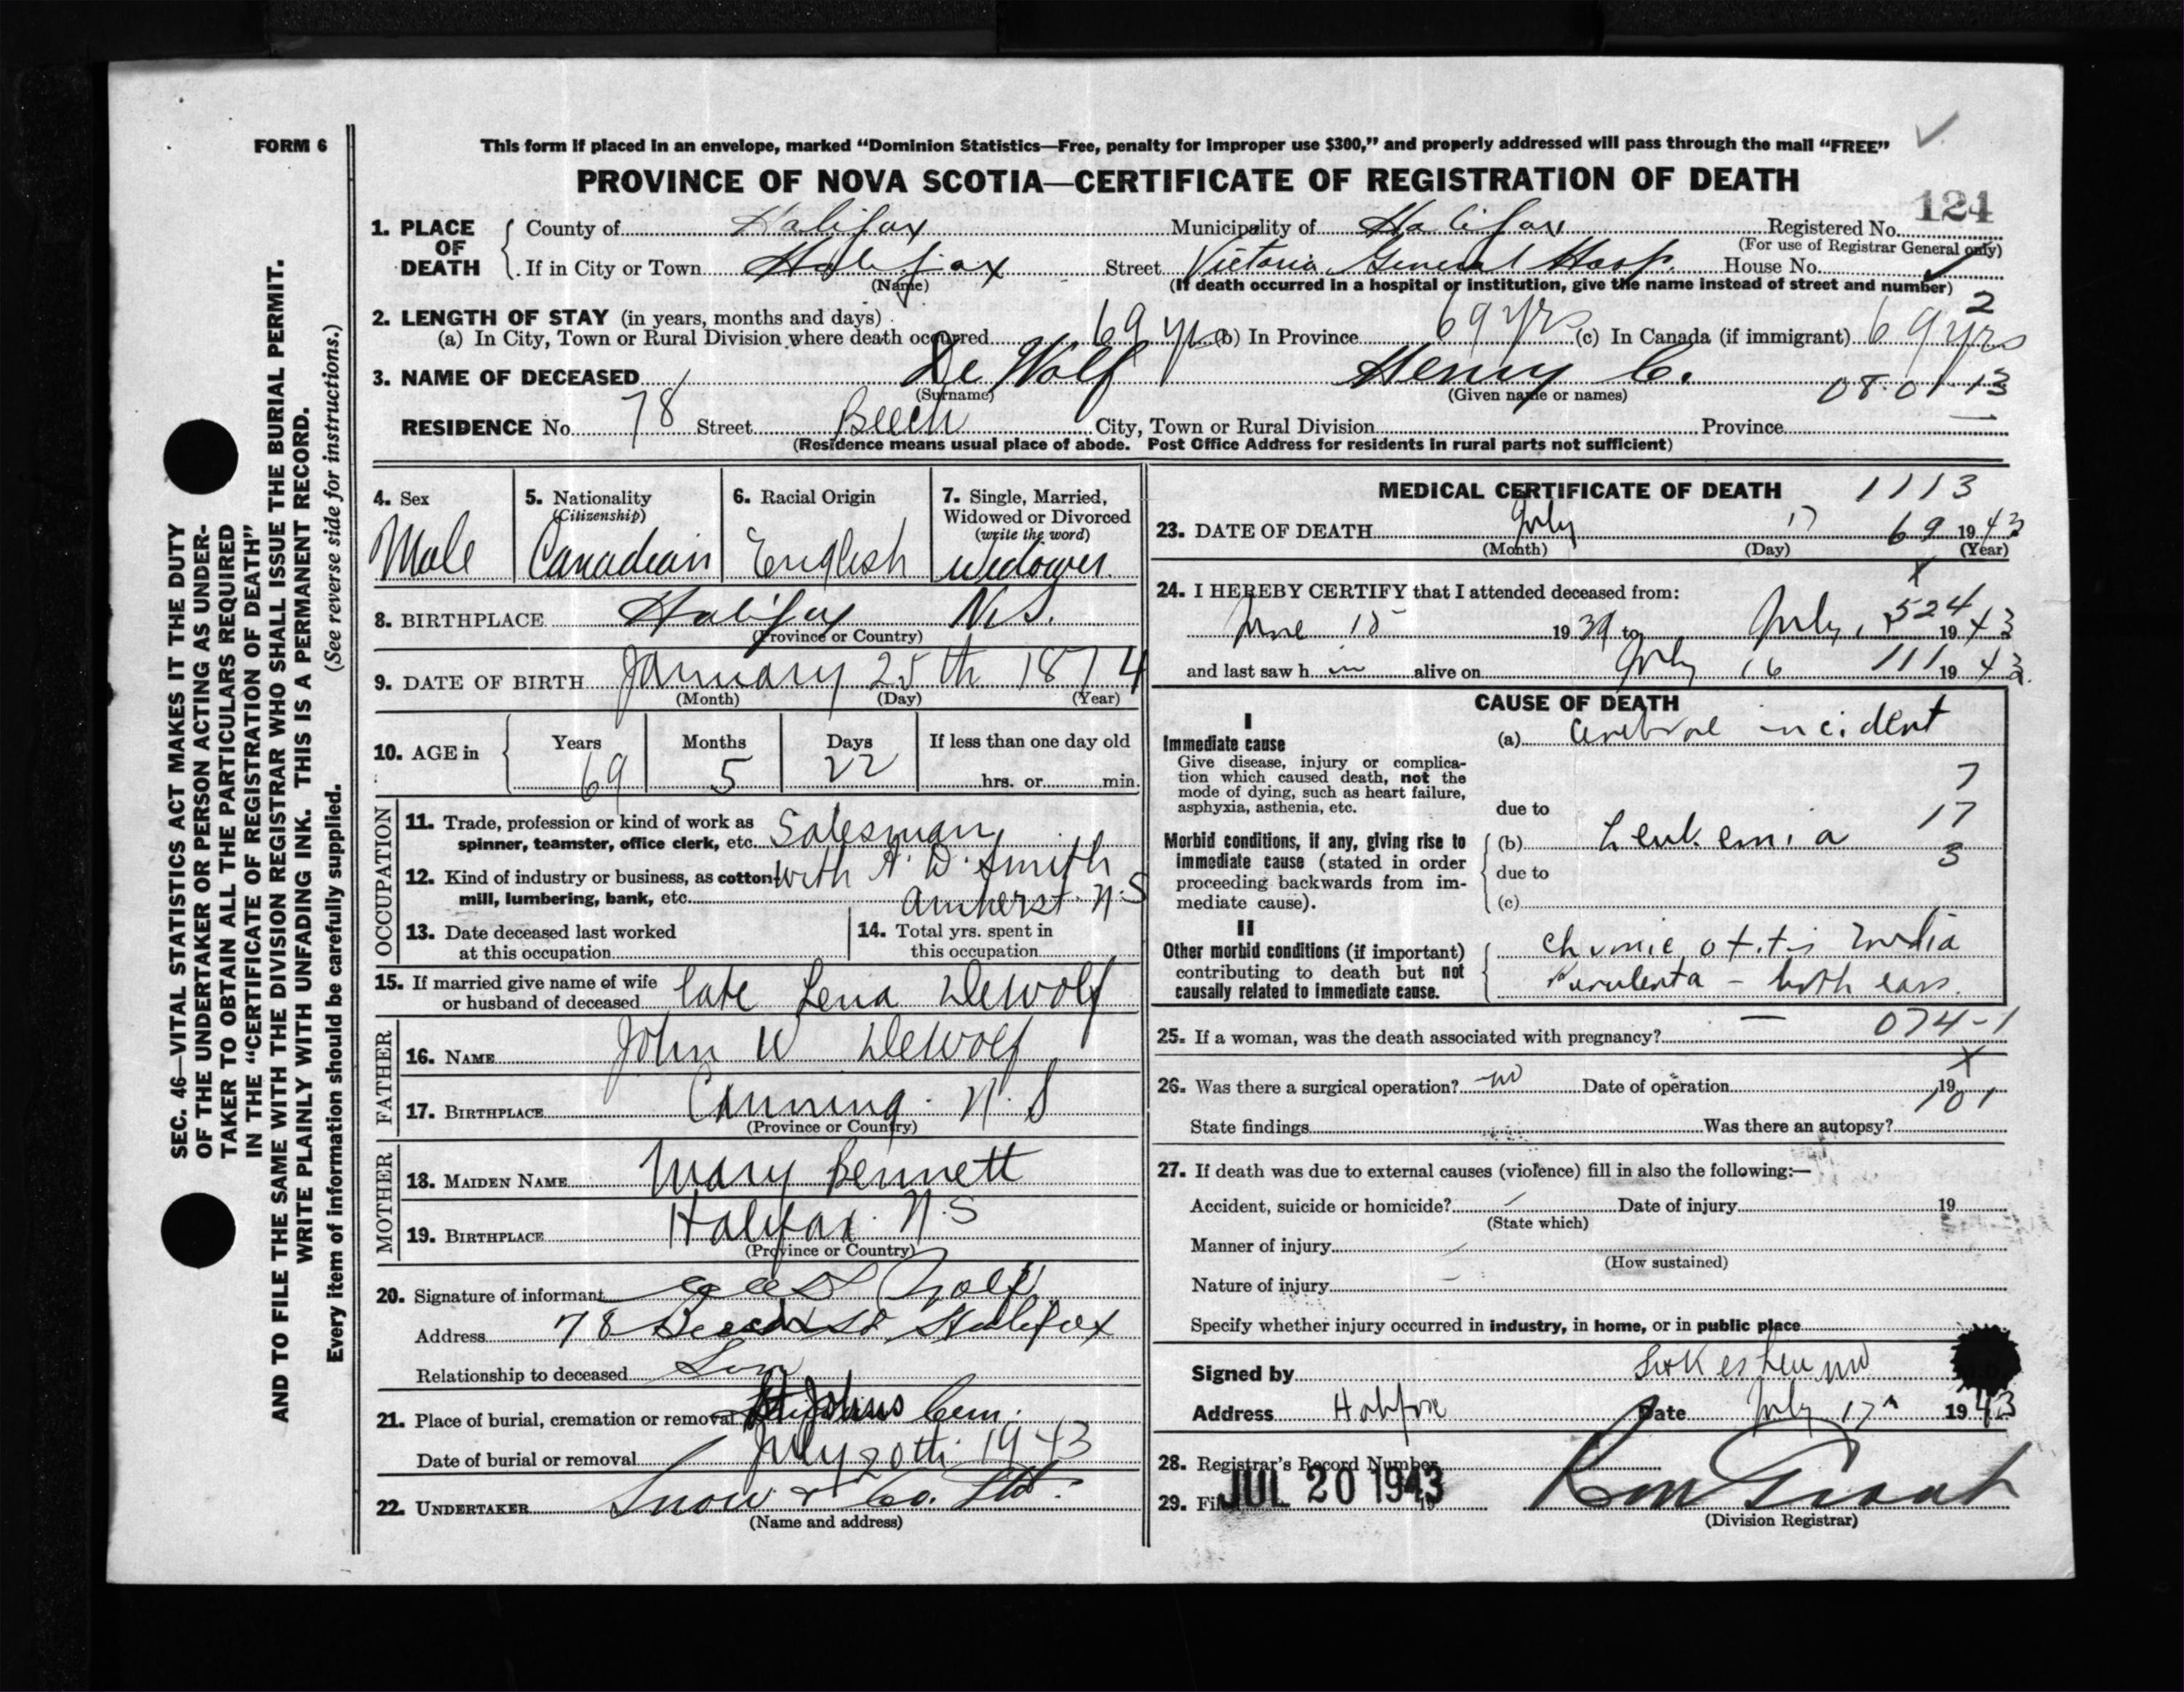 FORM 6
This form if placed in an envelope, marked “Dominion Statistics—Free, penalty for improper use $300,” and properly addressed will pass through the mail “FREE”
PROVINCE OF NOVA SCOTIA—CERTIFICATE OF REGISTRATION OF DEATH
124
1. PLACE OF DEATH County of Halifax Municipality of Halifax Registered No.
(For use of Registrar General only)
If in City or Town Halifax Street Victoria General Hosp. House No.
(Name) (If death occurred in a hospital or institution, give the name instead of street and number)
2
2. LENGTH OF STAY (in years, months and days)
(a) In City, Town or Rural Division where death occurred 69 yrs (b) In Province 69 yrs (c) In Canada (if immigrant) 69 yrs
3. NAME OF DECEASED De Wolf Henry C.
(Surname) (Given name or names) 08.01.13
RESIDENCE No. 78 Street Beech City, Town or Rural Division Province
(Residence means usual place of abode. Post Office Address for residents in rural parts not sufficient)
4. Sex Male
5. Nationality (Citizenship) Canadian
6. Racial Origin English
7. Single, Married, Widowed or Divorced (write the word) Widower
8. BIRTHPLACE Halifax N.S.
(Province or Country)
9. DATE OF BIRTH January 25th 1874
(Month) (Day) (Year)
10. AGE in Years 69 Months 5 Days 22 If less than one day old
hrs. or min.
OCCUPATION
11. Trade, profession or kind of work as
spinner, teamster, office clerk, etc. Salesman
12. Kind of industry or business, as cotton with A. D. Smith
mill, lumbering, bank, etc. Amherst. N.S
13. Date deceased last worked
at this occupation
14. Total yrs. spent in
this occupation
15. If married give name of wife
or husband of deceased late Lena DeWolf
FATHER
16. NAME John W DeWolf
17. BIRTHPLACE Canning. N.S
(Province or Country)
MOTHER
18. MAIDEN NAME Mary Bennett
19. BIRTHPLACE Halifax. N.S
(Province or Country)
20. Signature of informant Wolf
Address 78 Beech St Halifax
Relationship to deceased Son
21. Place of burial, cremation or removal St Johns Cem.
Date of burial or removal July 20th 1943
22. UNDERTAKER Snow & Co. Ltd.
(Name and address)
MEDICAL CERTIFICATE OF DEATH 1113
23. DATE OF DEATH July 17 69 1943
(Month) (Day) (Year)
24. I HEREBY CERTIFY that I attended deceased from:
524
June 15 1939 to July, 1943
and last saw h im alive on July 16 111 1943
CAUSE OF DEATH
I
Immediate cause
Give disease, injury or complica-
tion which caused death, not the
mode of dying, such as heart failure,
asphyxia, asthenia, etc.
(a) Cerebral incident
7
due to
17
Morbid conditions, if any, giving rise to
immediate cause (stated in order
proceeding backwards from im-
mediate cause).
(b) Leukemia
3
due to
(c)
II
Other morbid conditions (if important)
contributing to death but not
causally related to immediate cause.
Chronic otitis media
Purulenta - both ears.
25. If a woman, was the death associated with pregnancy? — 074-1
26. Was there a surgical operation? no Date of operation 19
101
State findings Was there an autopsy?
27. If death was due to external causes (violence) fill in also the following:—
Accident, suicide or homicide? Date of injury 19
(State which)
Manner of injury
(How sustained)
Nature of injury
Specify whether injury occurred in industry, in home, or in public place
Signed by
Address Halifax Date July 17 1943
28. Registrar's Record Number
29. Fil JUL 20 1943
(Division Registrar)
SEC. 46—VITAL STATISTICS ACT MAKES IT THE DUTY
OF THE UNDERTAKER OR PERSON ACTING AS UNDER-
TAKER TO OBTAIN ALL THE PARTICULARS REQUIRED
IN THE “CERTIFICATE OF REGISTRATION OF DEATH”
AND TO FILE THE SAME WITH THE DIVISION REGISTRAR WHO SHALL ISSUE THE BURIAL PERMIT.
WRITE PLAINLY WITH UNFADING INK. THIS IS A PERMANENT RECORD.
Every item of information should be carefully supplied. (See reverse side for instructions.)